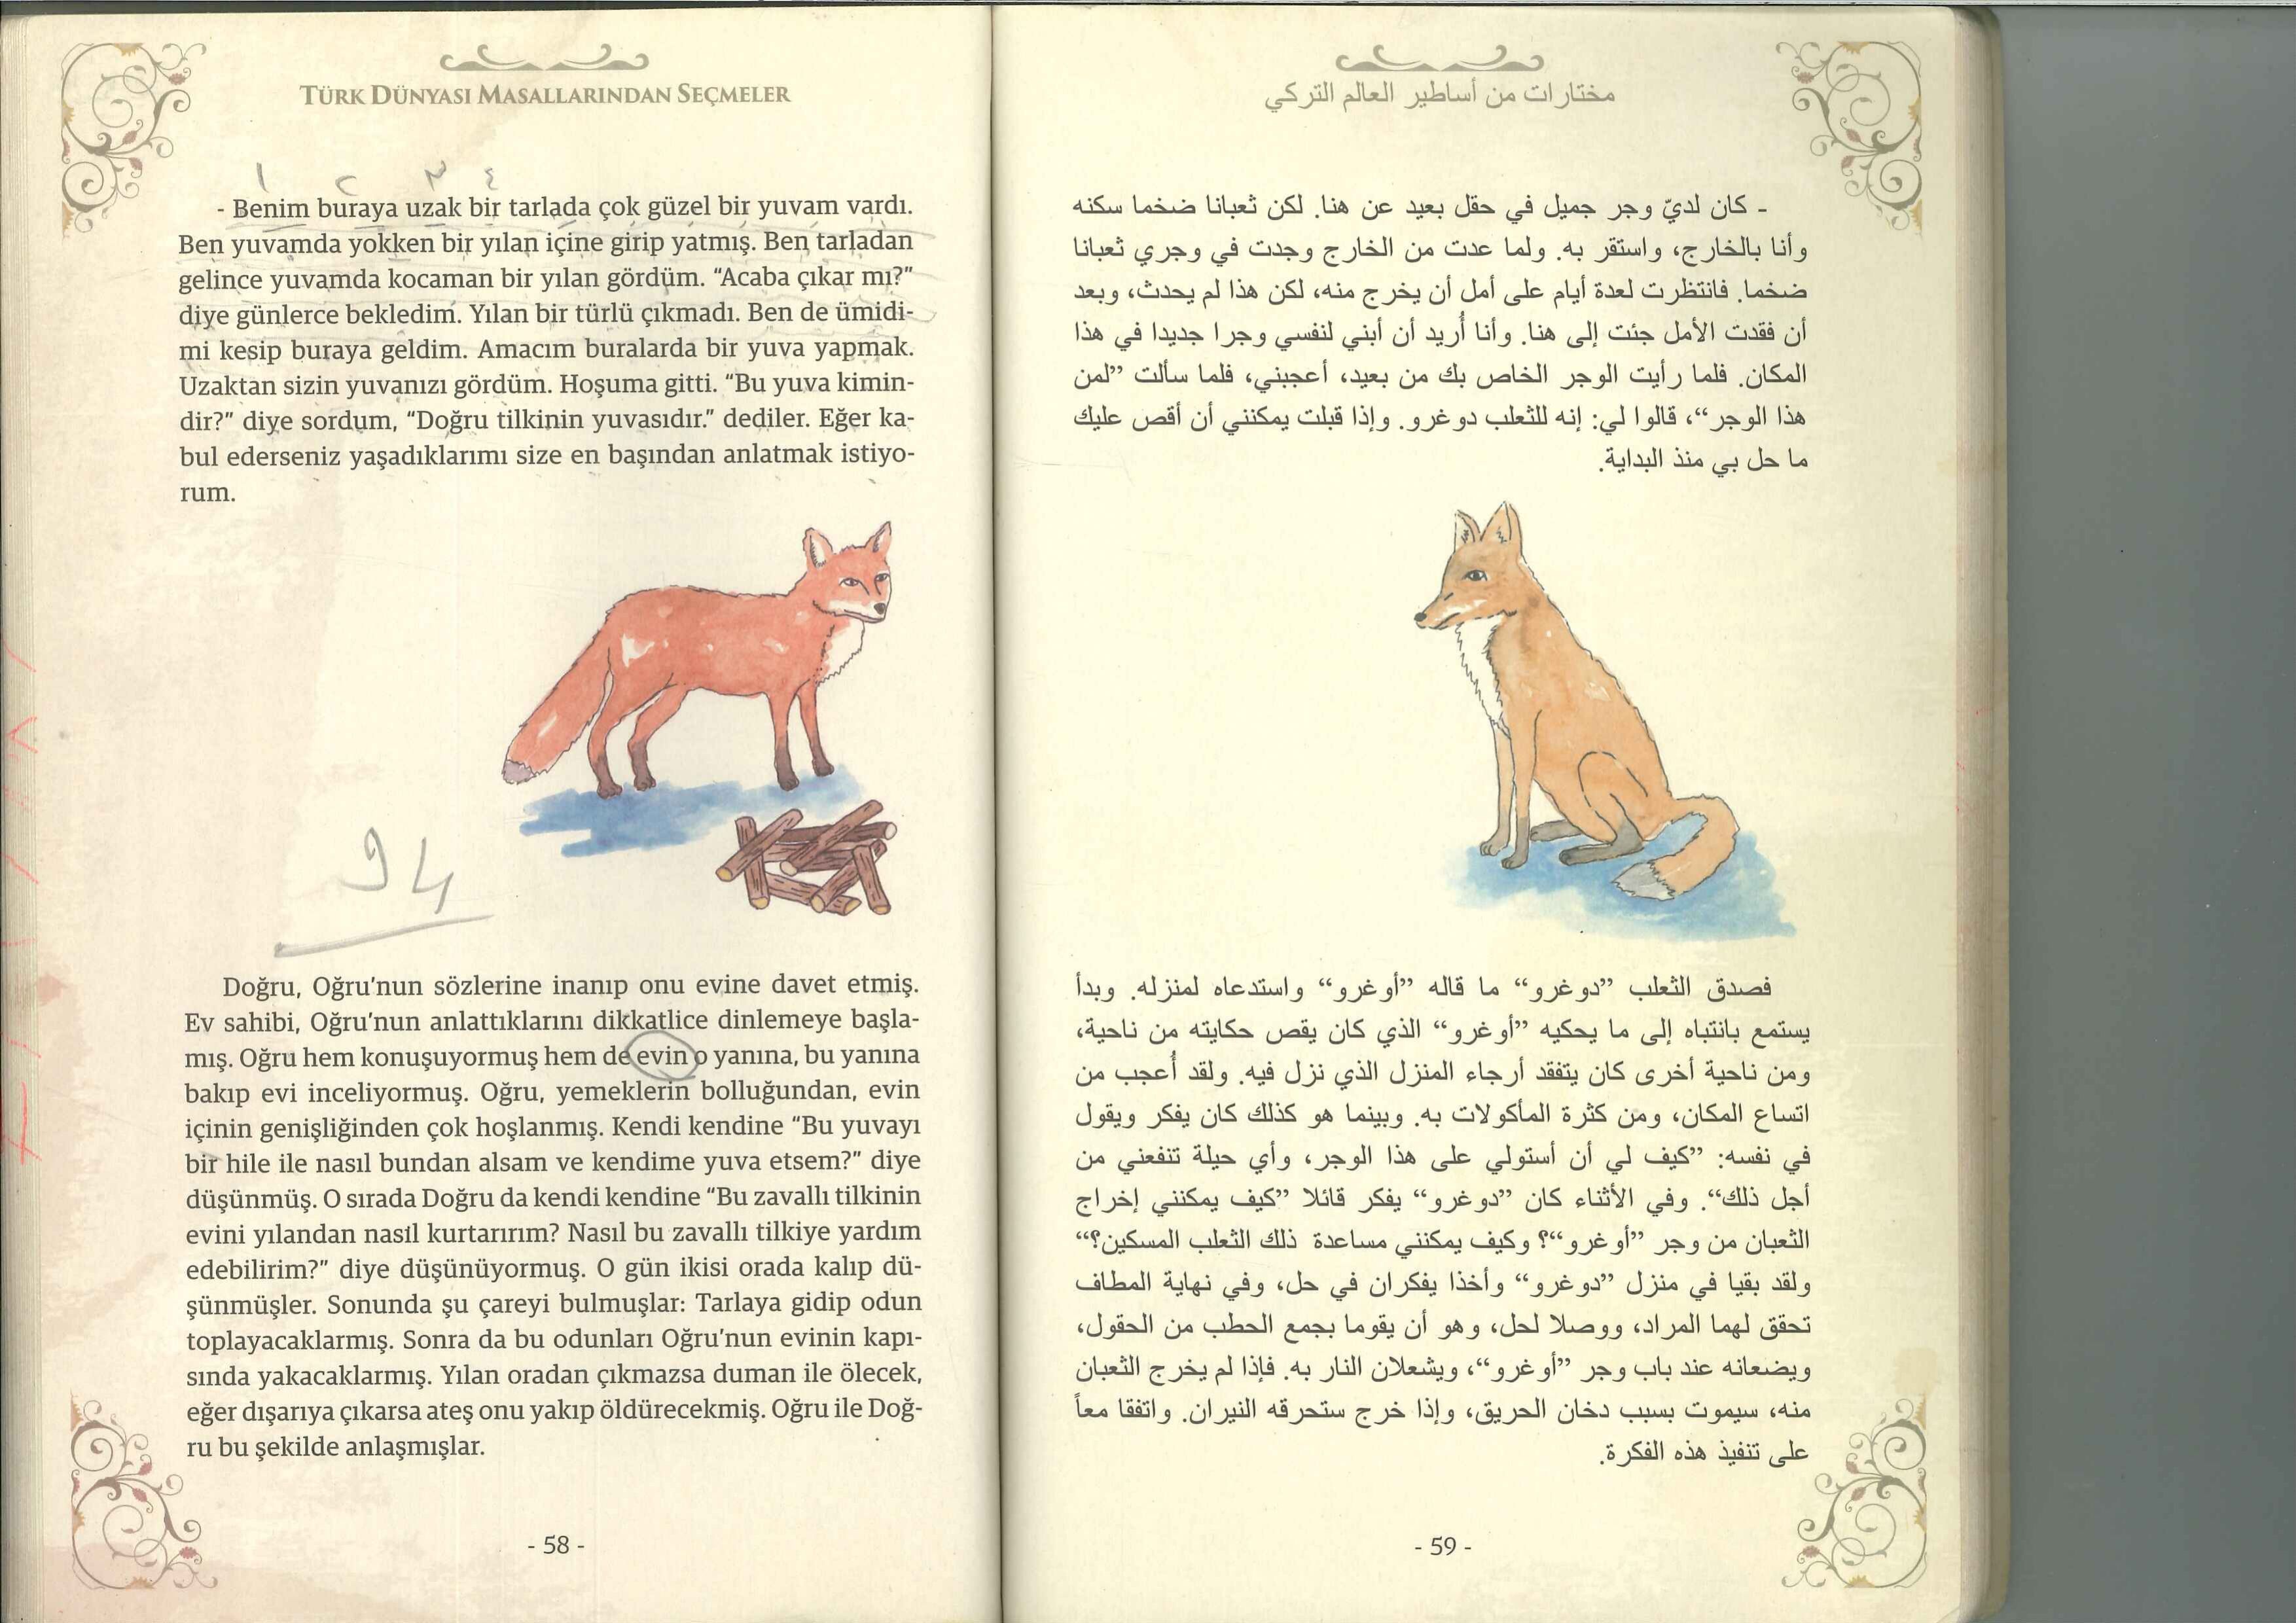 TÜRK DÜNYASI MASALLARINDAN SEÇMELER
١ ٢ ٣ ٤
- Benim buraya uzak bir tarlada çok güzel bir yuvam vardı.
Ben yuvamda yokken bir yılan içine girip yatmış. Ben tarladan
gelince yuvamda kocaman bir yılan gördüm. “Acaba çıkar mı?”
diye günlerce bekledim. Yılan bir türlü çıkmadı. Ben de ümidi-
mi kesip buraya geldim. Amacım buralarda bir yuva yapmak.
Uzaktan sizin yuvanızı gördüm. Hoşuma gitti. “Bu yuva kimin-
dir?” diye sordum, “Doğru tilkinin yuvasıdır.” dediler. Eğer ka-
bul ederseniz yaşadıklarımı size en başından anlatmak istiyo-
rum.
94
Doğru, Oğru’nun sözlerine inanıp onu evine davet etmiş.
Ev sahibi, Oğru’nun anlattıklarını dikkatlice dinlemeye başla-
mış. Oğru hem konuşuyormuş hem de evin o yanına, bu yanına
bakıp evi inceliyormuş. Oğru, yemeklerin bolluğundan, evin
içinin genişliğinden çok hoşlanmış. Kendi kendine “Bu yuvayı
bir hile ile nasıl bundan alsam ve kendime yuva etsem?” diye
düşünmüş. O sırada Doğru da kendi kendine “Bu zavallı tilkinin
evini yılandan nasıl kurtarırım? Nasıl bu zavallı tilkiye yardım
edebilirim?” diye düşünüyormuş. O gün ikisi orada kalıp dü-
şünmüşler. Sonunda şu çareyi bulmuşlar: Tarlaya gidip odun
toplayacaklarmış. Sonra da bu odunları Oğru’nun evinin kapı-
sında yakacaklarmış. Yılan oradan çıkmazsa duman ile ölecek,
eğer dışarıya çıkarsa ateş onu yakıp öldürecekmiş. Oğru ile Doğ-
ru bu şekilde anlaşmışlar.
- 58 -
مختارات من أساطير العالم التركي
- كان لديّ وجر جميل في حقل بعيد عن هنا. لكن ثعبانا ضخما سكنه
وأنا بالخارج، واستقر به. ولما عدت من الخارج وجدت في وجري ثعبانا
ضخما. فانتظرت لعدة أيام على أمل أن يخرج منه، لكن هذا لم يحدث، وبعد
أن فقدت الأمل جئت إلى هنا. وأنا أُريد أن أبني لنفسي وجرا جديدا في هذا
المكان. فلما رأيت الوجر الخاص بك من بعيد، أعجبني، فلما سألت ”لمن
هذا الوجر“، قالوا لي: إنه للثعلب دوغرو. وإذا قبلت يمكنني أن أقص عليك
ما حل بي منذ البداية.
فصدق الثعلب ”دوغرو“ ما قاله ”أوغرو“ واستدعاه لمنزله. وبدأ
يستمع بانتباه إلى ما يحكيه ”أوغرو“ الذي كان يقص حكايته من ناحية،
ومن ناحية أخرى كان يتفقد أرجاء المنزل الذي نزل فيه. ولقد أُعجب من
اتساع المكان، ومن كثرة المأكولات به. وبينما هو كذلك كان يفكر ويقول
في نفسه: ”كيف لي أن أستولي على هذا الوجر، وأي حيلة تنفعني من
أجل ذلك“. وفي الأثناء كان ”دوغرو“ يفكر قائلا ”كيف يمكنني إخراج
الثعبان من وجر ”أوغرو“؟ وكيف يمكنني مساعدة ذلك الثعلب المسكين؟“
ولقد بقيا في منزل ”دوغرو“ وأخذا يفكران في حل، وفي نهاية المطاف
تحقق لهما المراد، ووصلا لحل، وهو أن يقوما بجمع الحطب من الحقول،
ويضعانه عند باب وجر ”أوغرو“، ويشعلان النار به. فإذا لم يخرج الثعبان
منه، سيموت بسبب دخان الحريق، وإذا خرج ستحرقه النيران. واتفقا معاً
على تنفيذ هذه الفكرة.
- 59 -